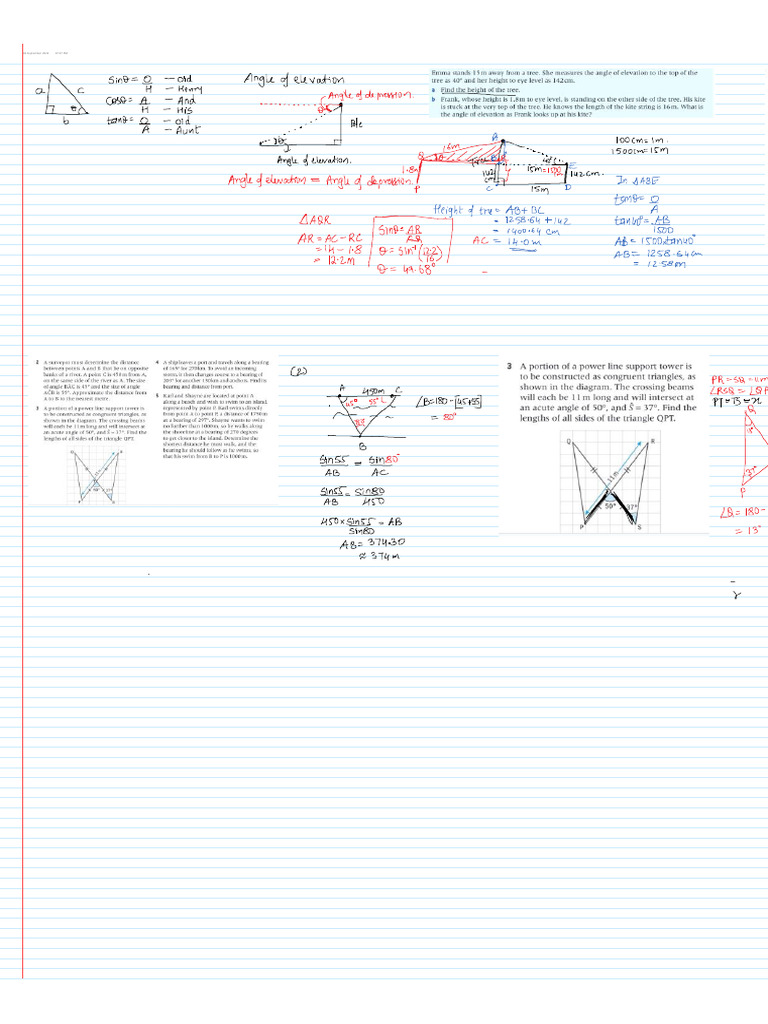 sinθ = O/H — Old
— Henry
cosθ = A/H — And
— His
tanθ = O/A — Old
— Aunt
a
c
b
θ
Angle of elevation
Angle of depression.
θ
Ble
Angle of elevation.
Angle of elevation = Angle of depression.
Emma stands 15m away from a tree. She measures the angle of elevation to the top of the
tree as 40° and her height to eye level as 142cm.
a Find the height of the tree.
b Frank, whose height is 1.8m to eye level, is standing on the other side of the tree. His kite
is stuck at the very top of the tree. He knows the length of the kite string is 16m. What is
the angle of elevation as Frank looks up at his kite?
16m
1.8m
15m=1500
142cm.
15m
100cm=1m.
1500cm=15m
In △ABE
tanθ = O/A
tan40° = AB/1500
AB = 1500×tan40°
AB = 1258.64cm
= 12.58m
Height of tree = AB + BC
= 1258.64 + 142
= 1400.64 cm
AC = 14.0m
△AQR
AR = AC − RC
= 14 − 1.8
= 12.2m
sinθ = AR/AQ
θ = sin⁻¹(12.2/16)
θ = 49.68°
2 A surveyor must determine the distance
between points A and B that lie on opposite
banks of a river. A point C is 450m from A,
on the same side of the river as A. The size
of angle BAC is 45° and the size of angle
ACB is 55°. Approximate the distance from
A to B to the nearest metre.
3 A portion of a power line support tower is
to be constructed as congruent triangles, as
shown in the diagram. The crossing beams
will each be 11m long and will intersect at
an acute angle of 50°, and Ŝ = 37°. Find the
lengths of all sides of the triangle QPT.
4 A ship leaves a port and travels along a bearing
of for 270km. To avoid an incoming
storm, it then changes course to a bearing of
for another 150km and anchors. Find its
bearing and distance from port.
5 Karl and Shayne are located at point A
along a beach and wish to swim to an island,
represented by point P. Karl swims directly
from point A to point P, a distance of 1750m
at a bearing of 297°. Shayne wants to swim
no further than 1000m, so he walks along
the shoreline at a bearing of 270 degrees
to get closer to the island. Determine the
shortest distance he must walk, and the
bearing he should follow as he swims, so
that his swim from B to P is 1000m.
(2)
A 450m C
45° 55°
80°
B
∠B = 180 − [45+55]
= 80°
sin55/AB = sin80°/AC
sin55/AB = sin80/450
450 × sin55/sin80 = AB
AB = 374.30
≈ 374m
3 A portion of a power line support tower is
to be constructed as congruent triangles, as
shown in the diagram. The crossing beams
will each be 11m long and will intersect at
an acute angle of 50°, and Ŝ = 37°. Find the
lengths of all sides of the triangle QPT.
Q R
11m
50° 37°
P S
PR = SQ = 11m
∠RSQ = ∠QP
PT = TS = x
Q
37°
P
∠Q = 180 −
= 13°